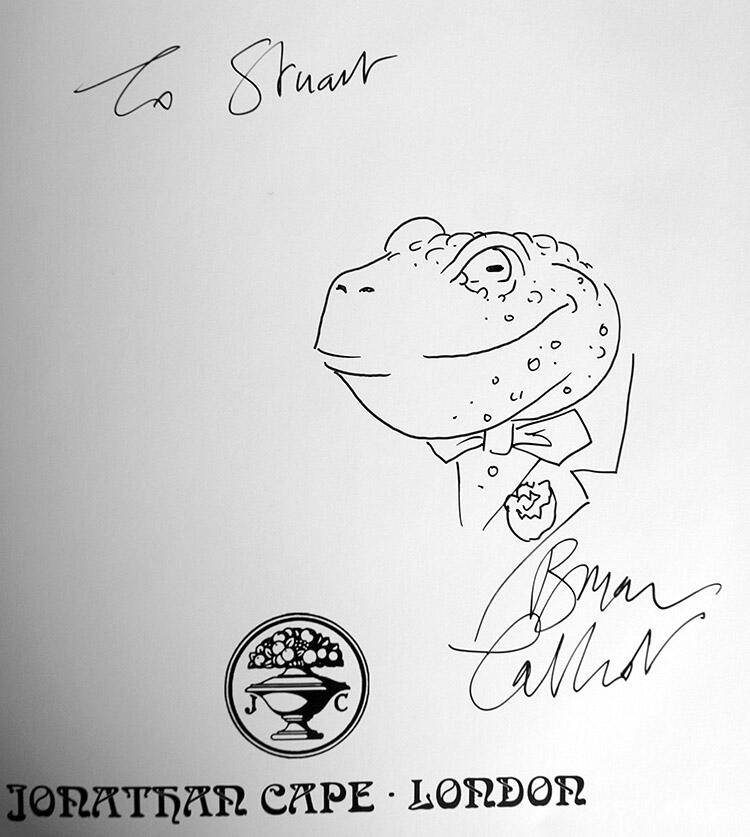 To Stuart
Bryan
Talbot
J C
JONATHAN CAPE · LONDON